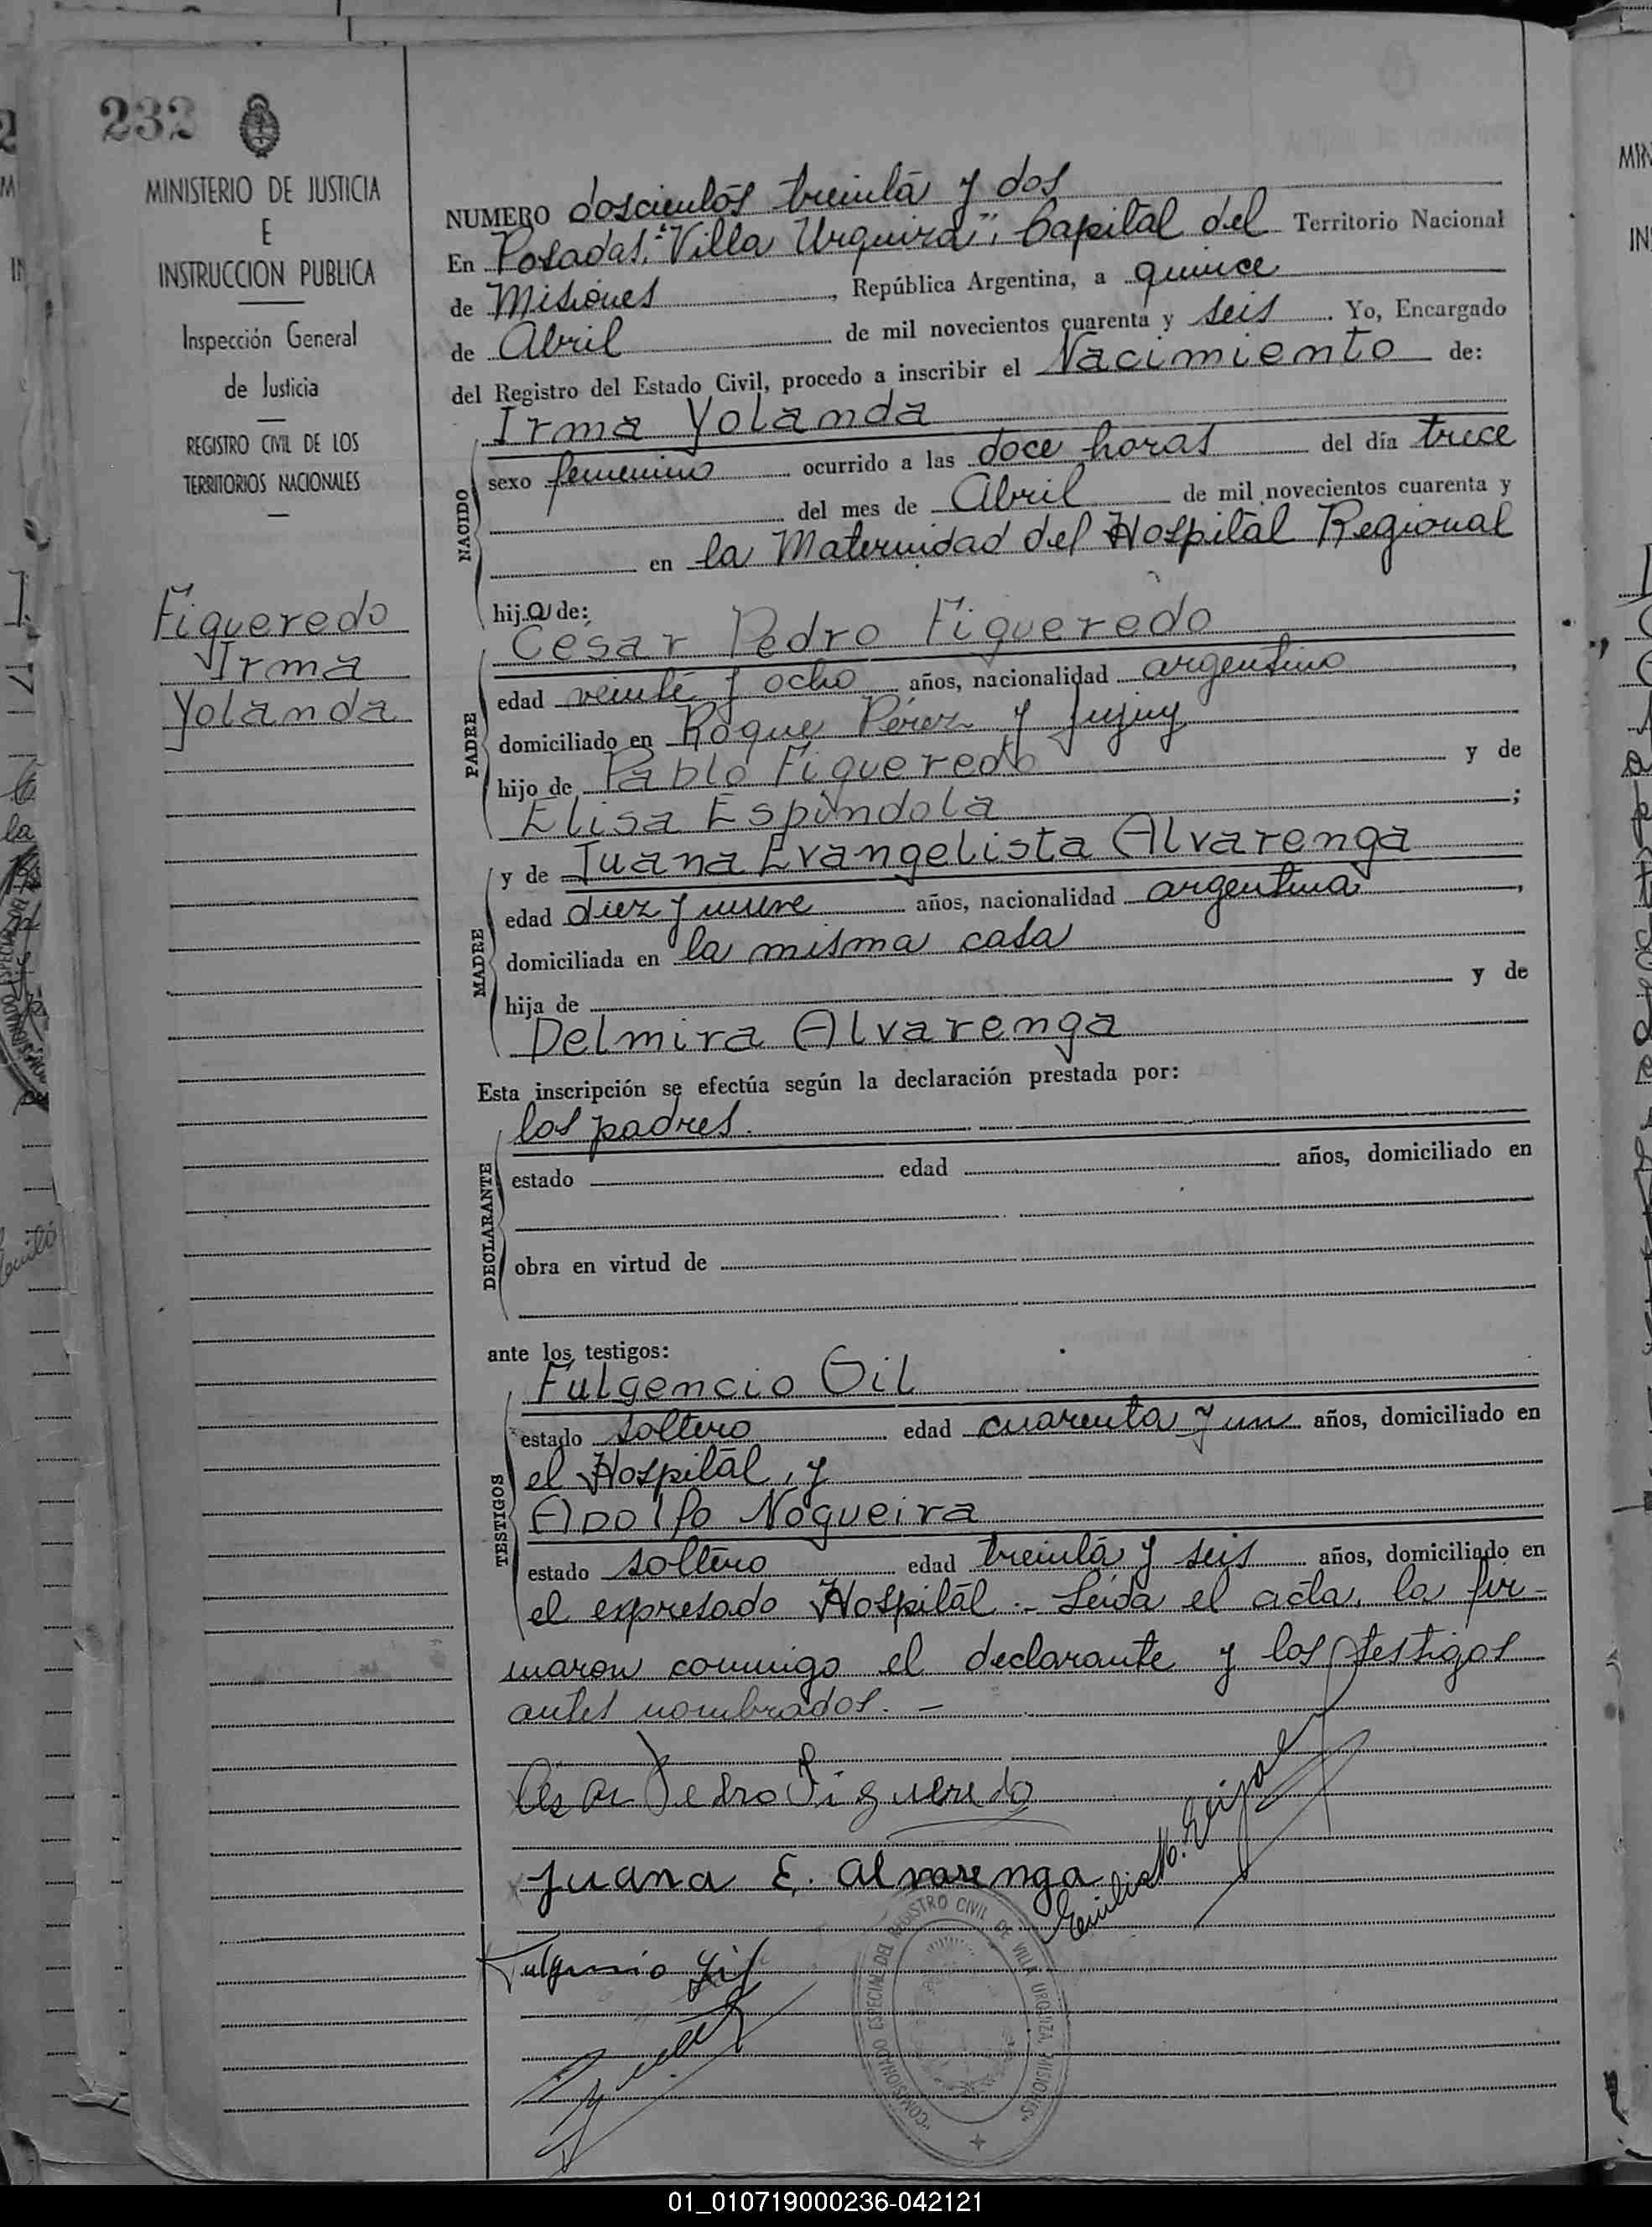 232
MINISTERIO DE JUSTICIA
E
INSTRUCCION PUBLICA
Inspección General
de Justicia
REGISTRO CIVIL DE LOS
TERRITORIOS NACIONALES
Figueredo
Irma
Yolanda
NUMERO doscientos treinta y dos
En Posadas, "Villa Urquiza", Capital del Territorio Nacional
de Misiones, República Argentina, a quince
de Abril de mil novecientos cuarenta y seis. Yo, Encargado
del Registro del Estado Civil, procedo a inscribir el Nacimiento de:
Irma Yolanda
NACIDO
sexo femenino ocurrido a las doce horas del día trece
del mes de Abril de mil novecientos cuarenta y
en la Maternidad del Hospital Regional
hija de:
César Pedro Figueredo
PADRE
edad veinte y ocho años, nacionalidad argentino,
domiciliado en Roque Pérez y Jujuy
hijo de Pablo Figueredo y de
Elisa Espíndola;
y de Juana Evangelista Alvarenga
MADRE
edad diez y nueve años, nacionalidad argentina,
domiciliada en la misma casa
hija de y de
Delmira Alvarenga
Esta inscripción se efectúa según la declaración prestada por:
los padres.
DECLARANTE
estado edad años, domiciliado en
obra en virtud de
ante los testigos:
Fulgencio Gil
TESTIGOS
estado soltero edad cuarenta y un años, domiciliado en
el Hospital, y
Adolfo Nogueira
estado soltero edad treinta y seis años, domiciliado en
el expresado Hospital.- Leída el acta, la fir-
maron conmigo el declarante y los testigos
antes nombrados.-
Cesar Pedro Figueredo
Juana E. Alvarenga
Fulgencio Gil
"COMISIONADO ESPECIAL DEL REGISTRO CIVIL DE VILLA URQUIZA, MISIONES"
01_010719000236-042121